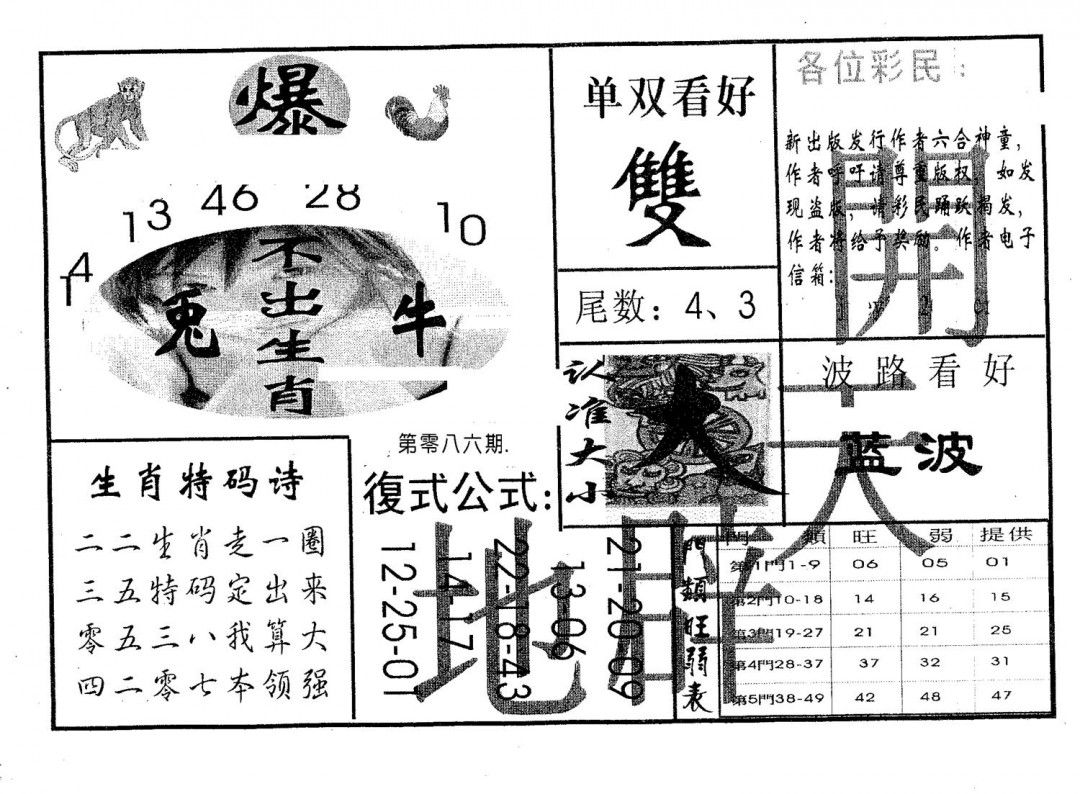 爆
14 13 46 28 10
兔
不出生肖
牛
单双看好
雙
尾数：4、3
各位彩民：
新出版发行作者六合神童，
作者呼吁请尊重版权，如发
现盗版，请彩民踊跃揭发，
作者将给予奖励。作者电子
信箱：
開
认准大小
大
波路看好
蓝波
天
生肖特码诗
二二生肖走一圈
三五特码定出来
零五三八我算大
四二零七本领强
第零八六期.
復式公式：
12-25-01
14-17
22-18-43
13-06
21-20-09
地
門類旺弱表
門類 旺 弱 提供
第1門1-9 06 05 01
第2門10-18 14 16 15
第3門19-27 21 21 25
第4門28-37 37 32 31
第5門38-49 42 48 47